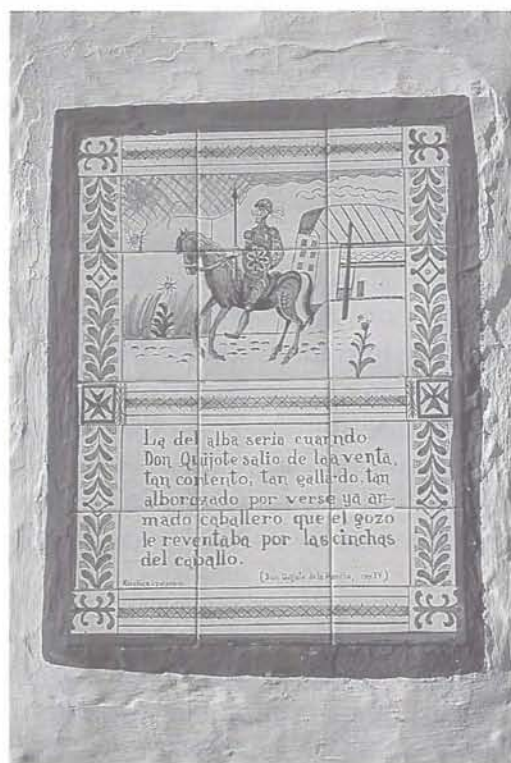 La del alba seria cuarndo
Don Quijote salio de laaventa,
tan contento, tan gallardo, tan
alborozado por verse ya ar-
mado caballero que el gozo
le reventaba por las cinchas
del caballo.
(Don Quijote de la Mancha, cap IV)